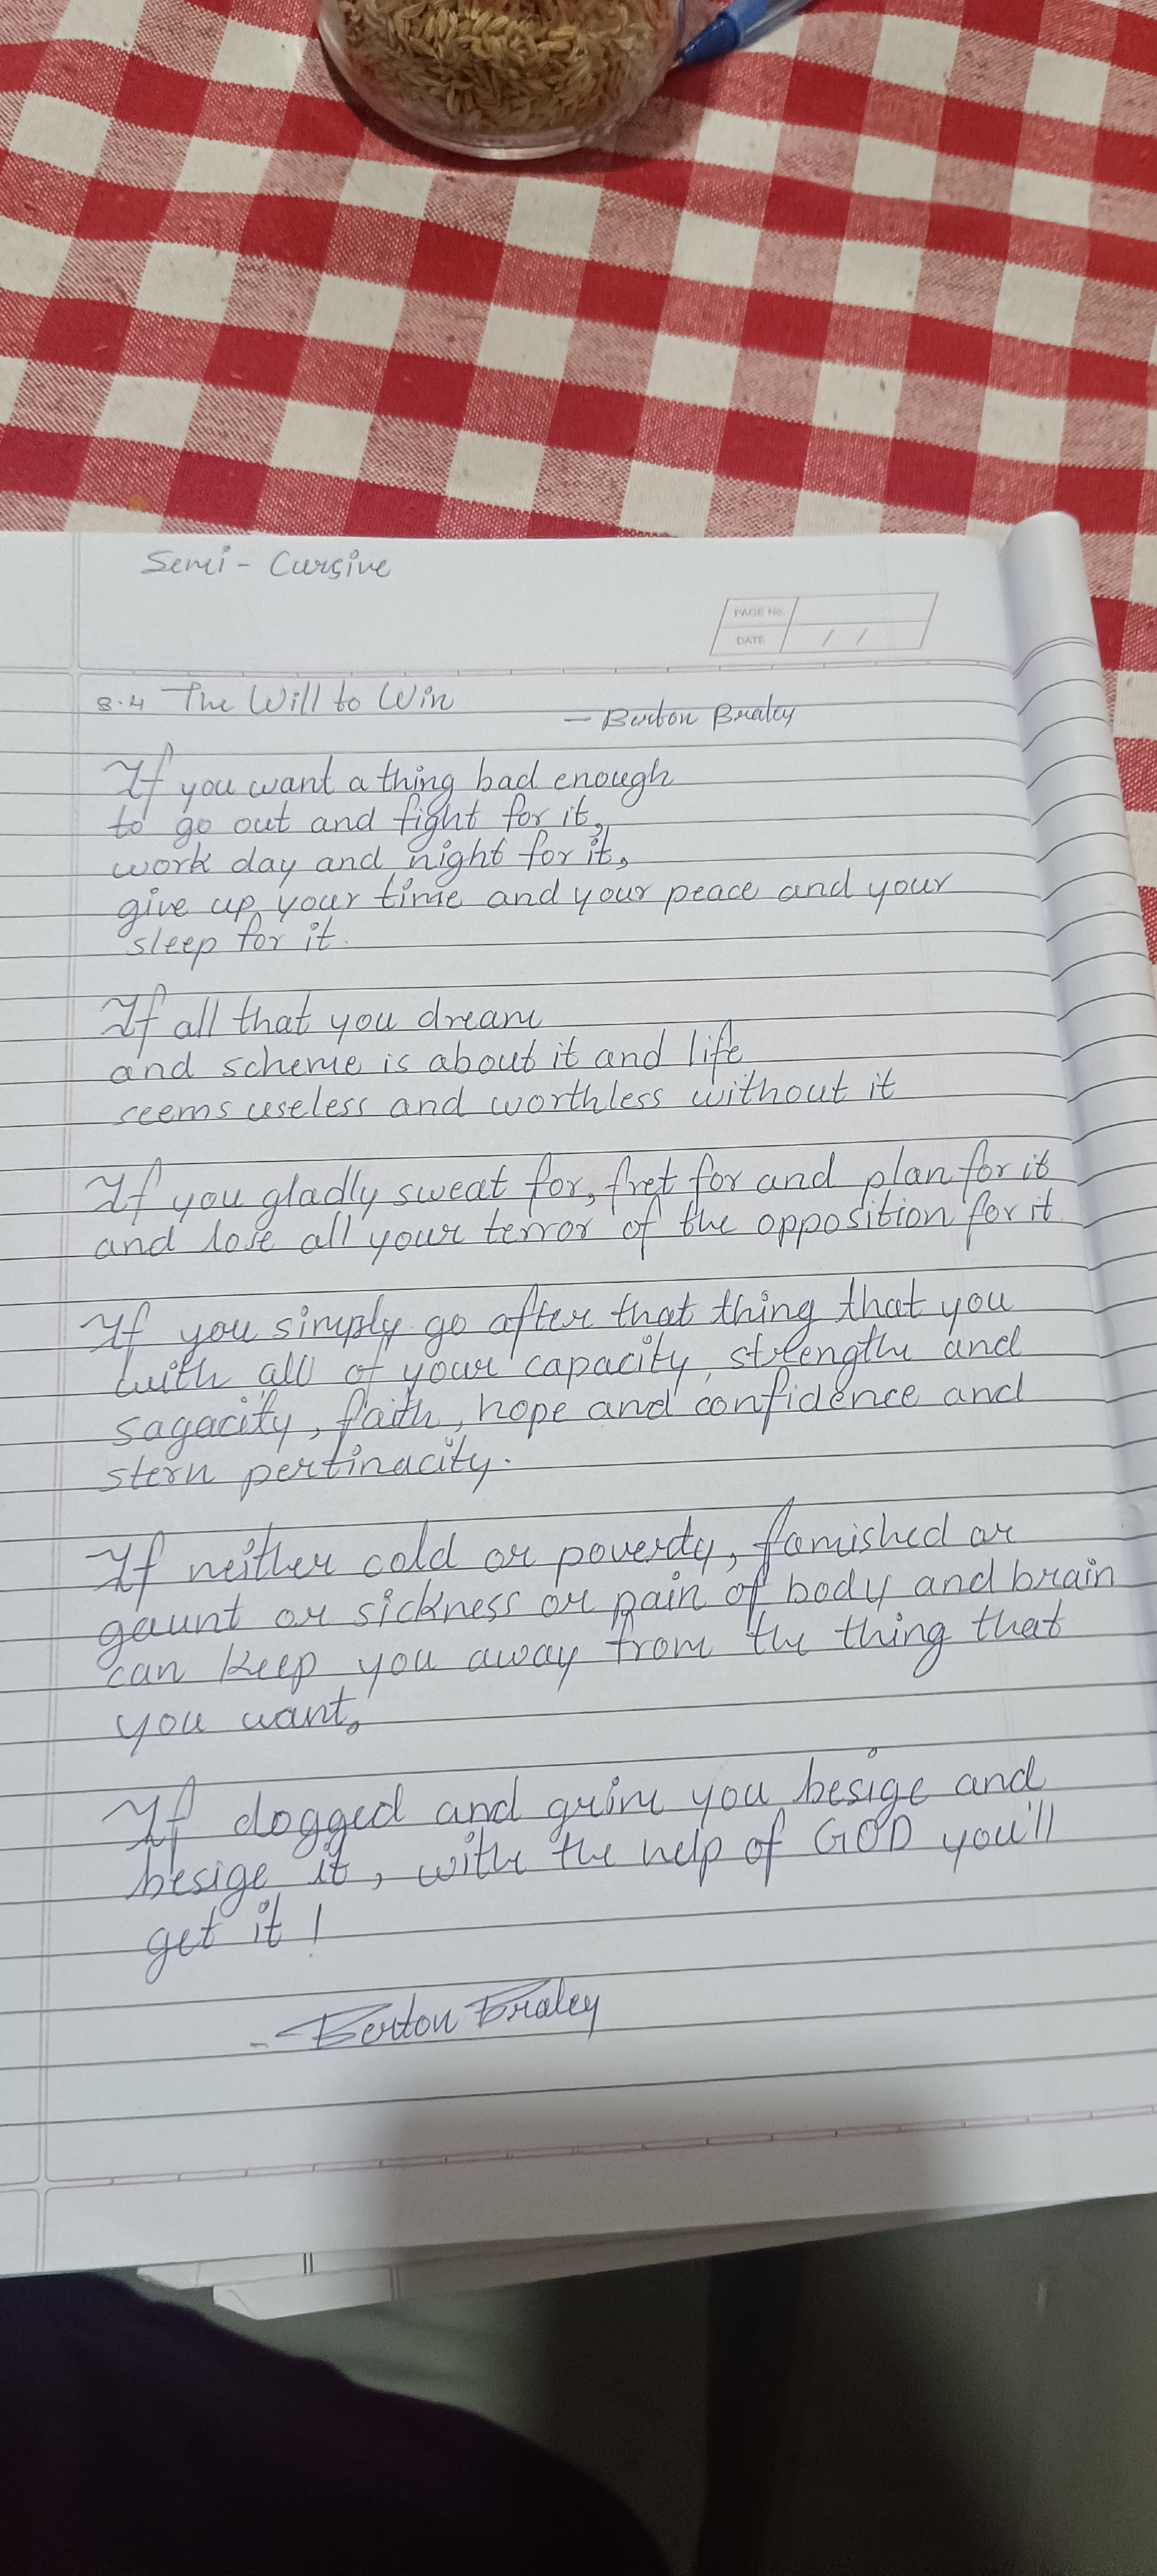 Semi - Cursive
PAGE No.
DATE / /
8.4 The Will to Win
- Berton Braley
If you want a thing bad enough
to go out and fight for it,
work day and night for it,
give up your time and your peace and your
sleep for it.
If all that you dream
and scheme is about it and life
seems useless and worthless without it
If you gladly sweat for, fret for and plan for it
and lose all your terror of the opposition for it
If you simply go after that thing that you
with all of your capacity, strength and
sagacity, faith, hope and confidence and
stern pertinacity.
If neither cold or poverty, famished or
gaunt or sickness or pain of body and brain
can keep you away from the thing that
you want,
If dogged and grim you besige and
besige it, with the help of GOD you'll
get it!
- Berton Braley